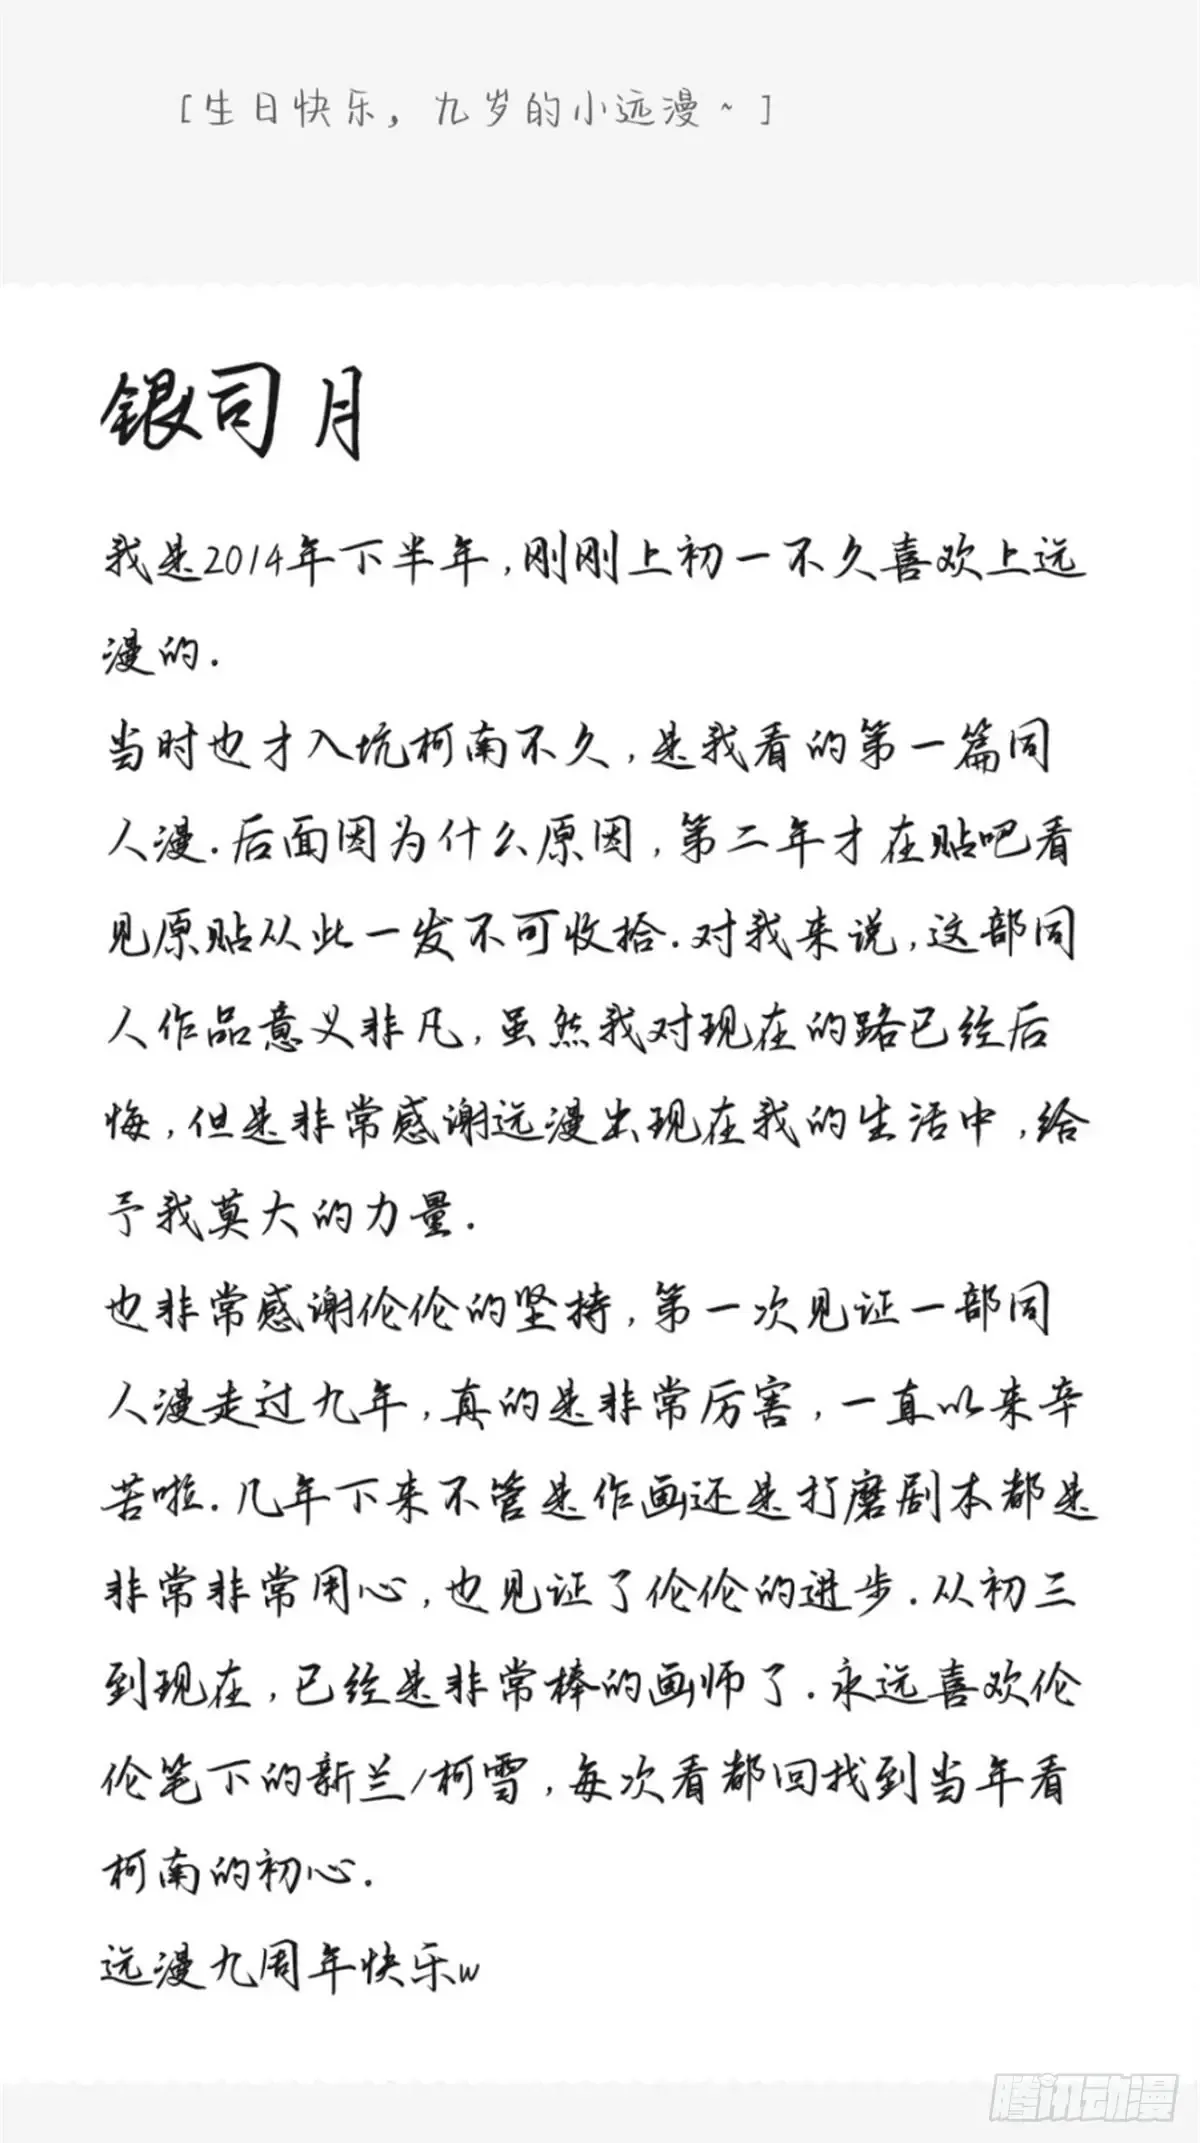 [生日快乐，九岁的小远漫~]
银司月
我是2014年下半年,刚刚上初一不久喜欢上远
漫的.
当时也才入坑柯南不久,是我看的第一篇同
人漫.后面因为什么原因,第二年才在贴吧看
见原贴从此一发不可收拾.对我来说,这部同
人作品意义非凡,虽然我对现在的路已经后
悔,但是非常感谢远漫出现在我的生活中,给
予我莫大的力量.
也非常感谢伦伦的坚持,第一次见证一部同
人漫走过九年,真的是非常厉害,一直以来辛
苦啦.几年下来不管是作画还是打磨剧本都是
非常非常用心,也见证了伦伦的进步.从初三
到现在,已经是非常棒的画师了.永远喜欢伦
伦笔下的新兰/柯雪,每次看都回找到当年看
柯南的初心.
远漫九周年快乐w
腾讯动漫